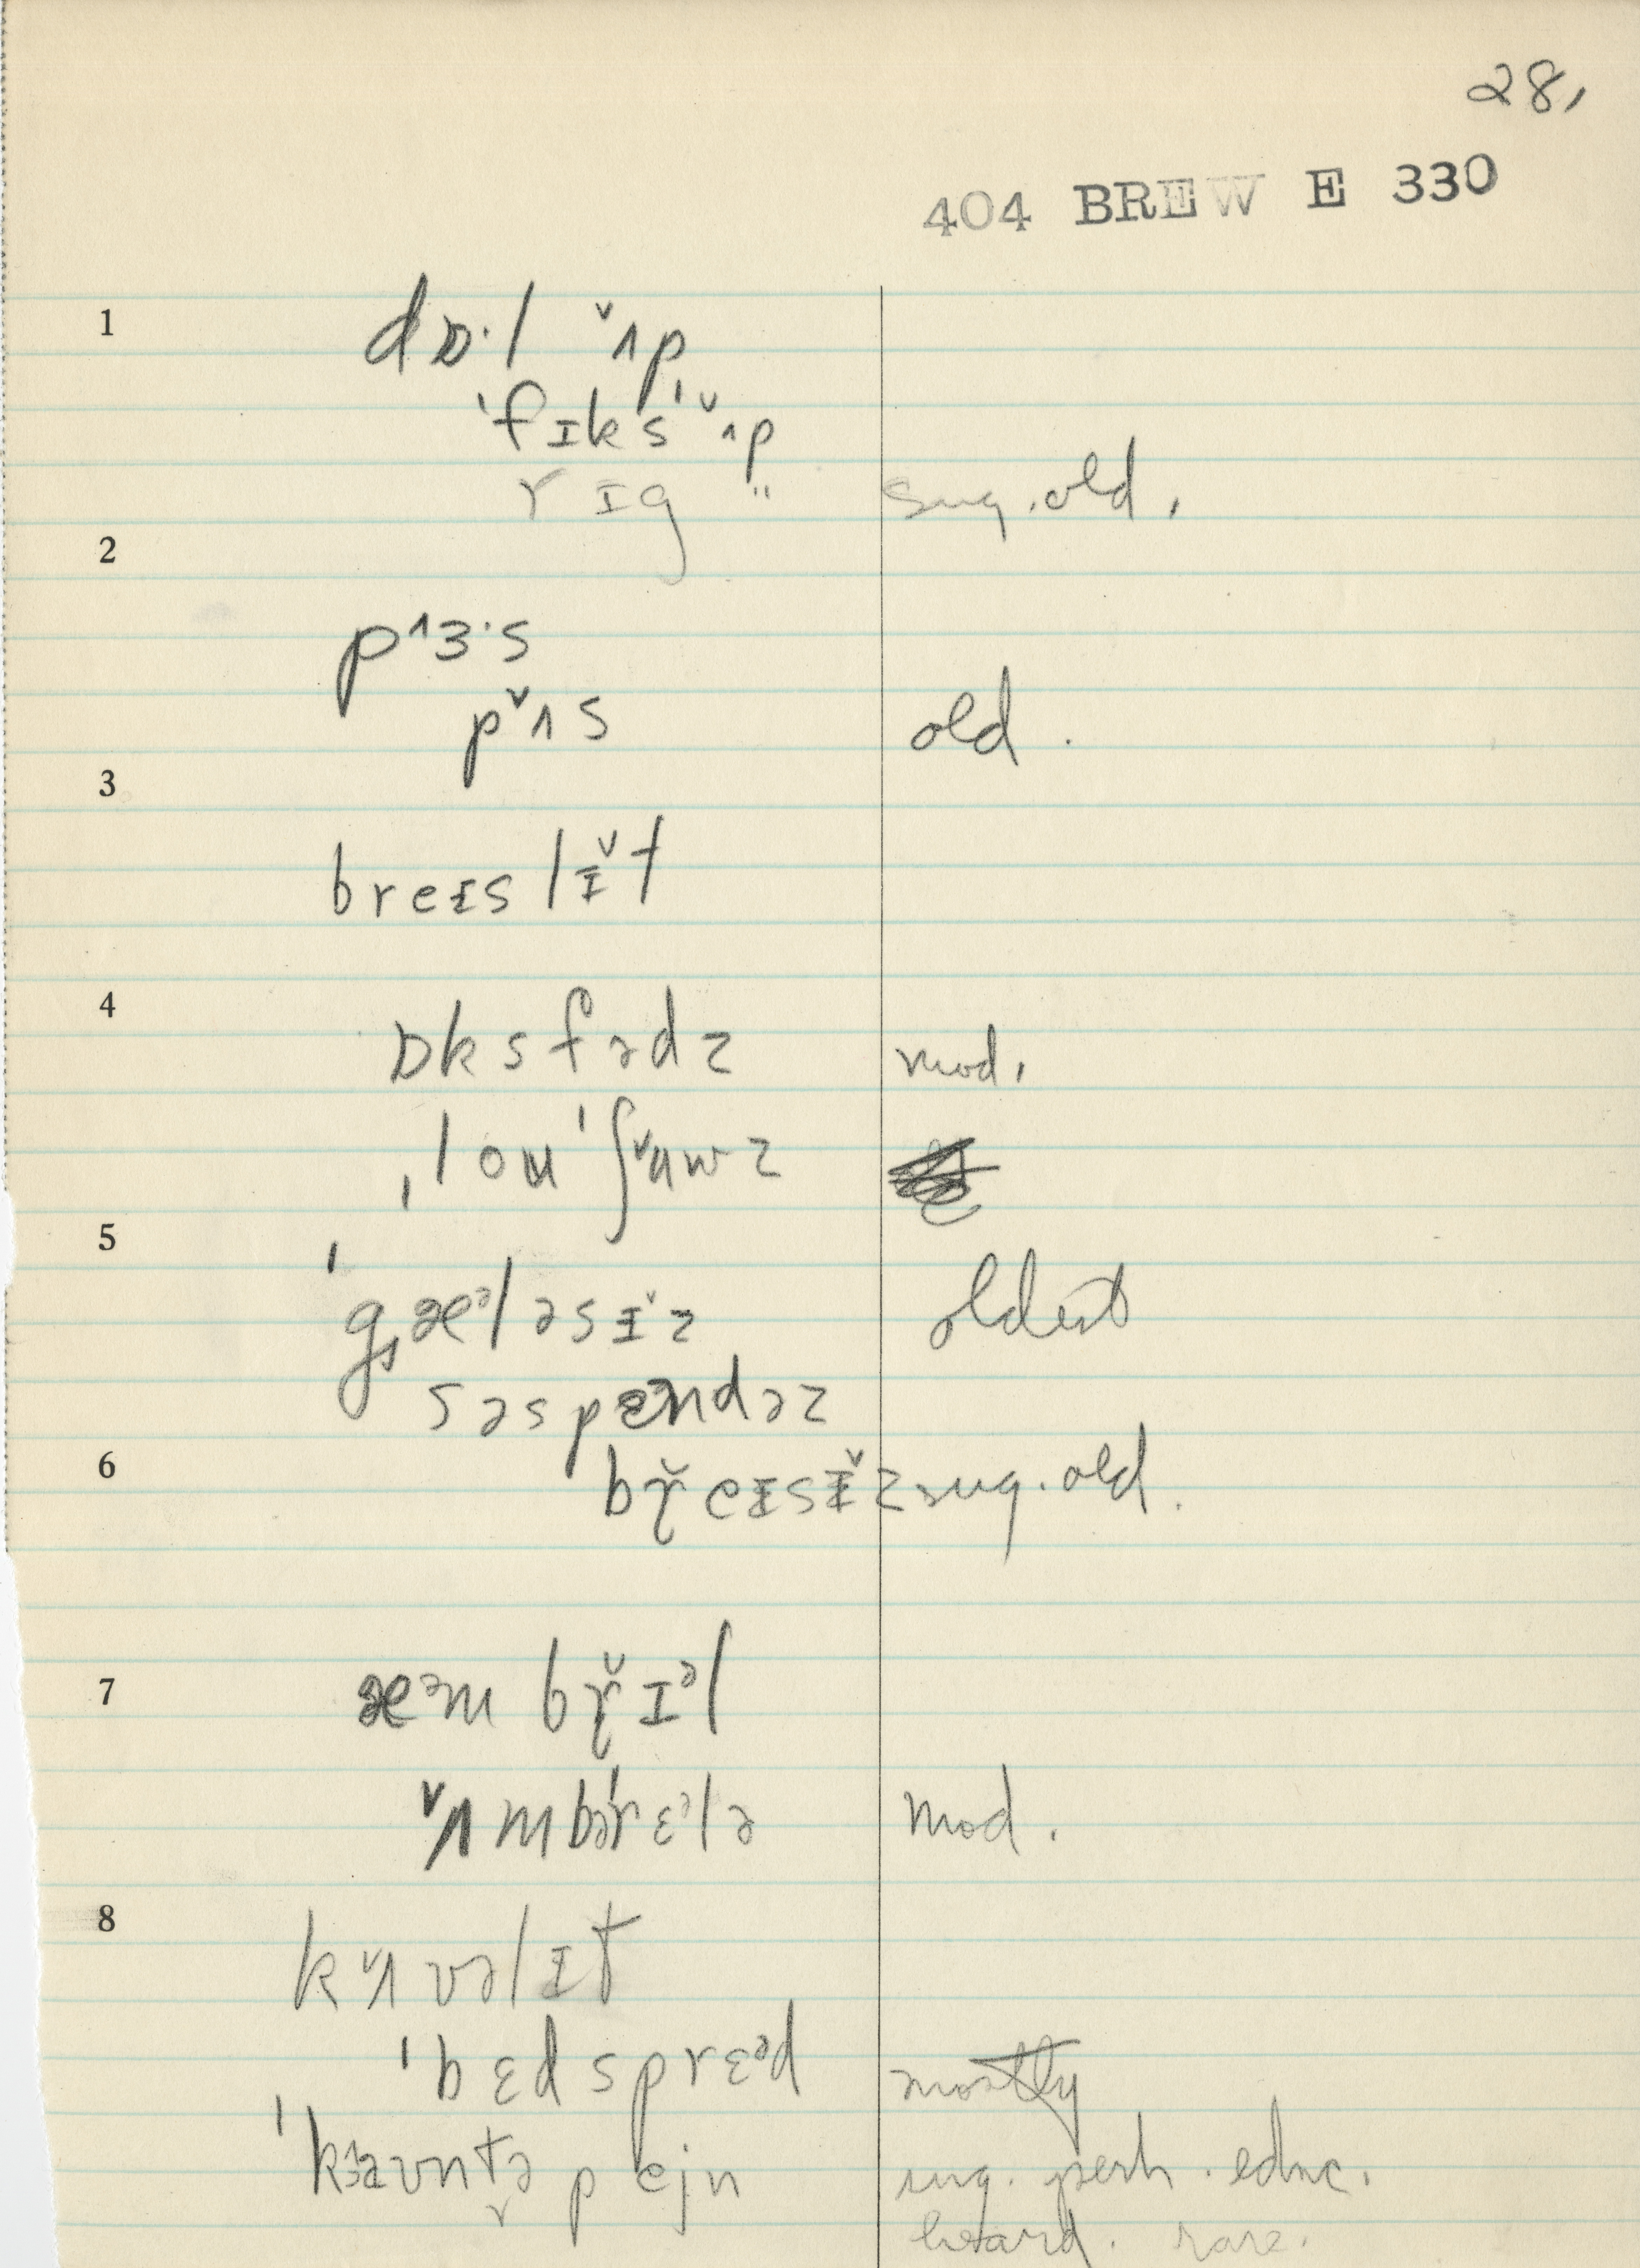 28,
404 BREW E 330
1 dɒ·l ˇʌp
ˈfɪksˈˇʌp
rɪg " sug. old.
2
p^ɜ·s
pˇʌs old.
3
breɪslɪˇt
4
ɒksfədz mod.
ˌlouˈʃˇuwz
5
ˈgæᵊləsɪˇz oldest
səspɛndəz
6 br̆eɪsɪˇz sug. old.
7 æᵊm br̆ɪᵊl
ˇʌmbəˈrɛᵊlə mod.
8
kˇʌvəlɪt
ˈbɛdsprɛᵊd mostly
pejn sug. perh. educ.
heard. rare.